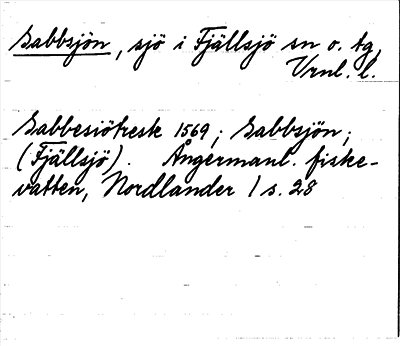 Gabbsjön, sjö i Fjällsjö sn o. tg,
Vrnl. l.
Gabbesiötresk 1569; Gabbsjön;
(Fjällsjö). Ångermanl. fiske-
vatten, Nordlander 1 s. 28